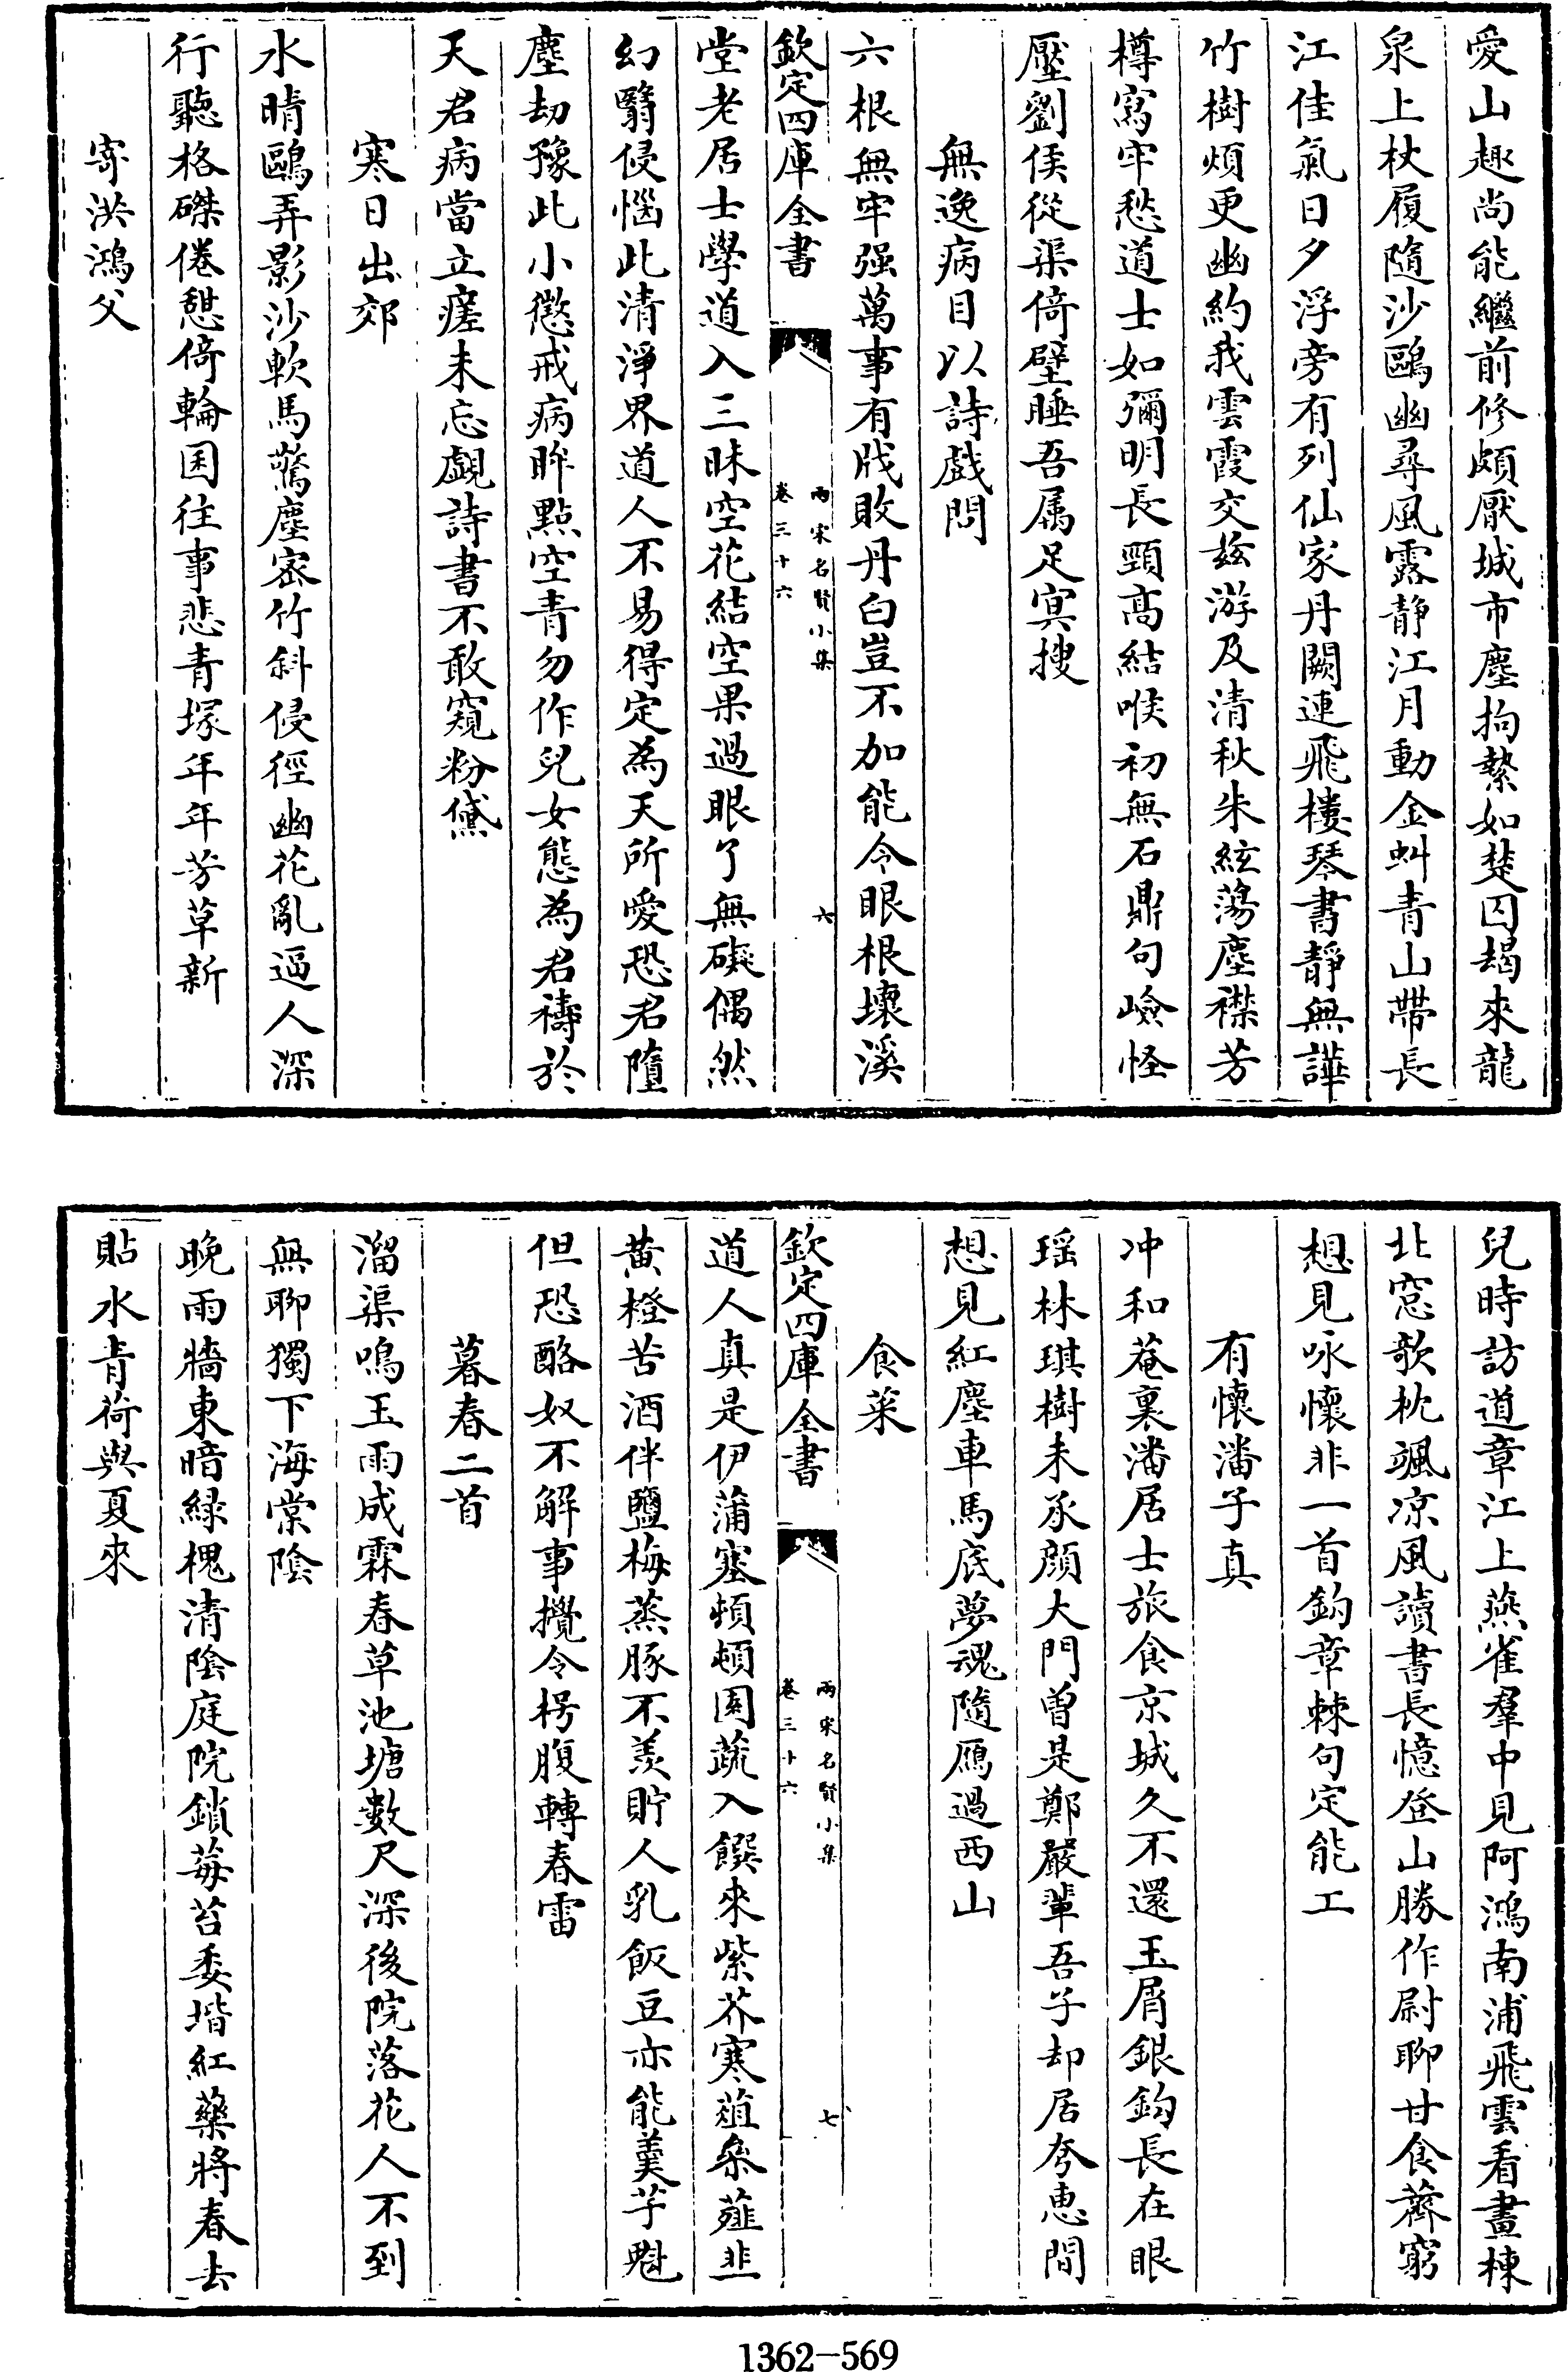 愛山趣尚能繼前修頗厭城市塵拘縶如楚囚朅來龍
泉上杖履隨沙鷗幽尋風露静江月動金虯青山帶長
江佳氣日夕浮旁有列仙家丹闕連飛樓琴書靜無譁
竹樹煩更幽約我雲霞交兹游及清秋朱絃蕩塵襟芳
樽寫牢愁道士如彌明長頸高結喉初無石鼎句嶮怪
壓劉侯從渠倚壁睡吾属足㝠搜
無逸病目以詩戲問
六根無牢强萬事有成敗丹臼豈不加能令眼根壞溪
欽定四庫全書
兩宋名賢小集
卷三十六
六
堂老居士學道入三昧空花結空果過眼了無礙偶然
幻翳侵惱此清淨界道人不易得定為天所愛恐君墮
塵劫豫此小懲戒病眸點空青勿作兒女態為君禱於
天君病當立瘥未忘覷詩書不敢窺粉黛
寒日出郊
水晴鷗弄影沙軟馬驚塵宻竹斜侵徑幽花亂逼人深
行聽格磔倦憇倚輪囷往事悲青塚年年芳草新
寄洪鴻父
兒時訪道章江上燕雀羣中見阿鴻南浦飛雲看畫棟
北窓欹枕颯凉風讀書長憶登山勝作尉聊甘食薺窮
想見咏懷非一首鈎章棘句定能工
有懷潘子真
冲和菴裏潘居士旅食京城久不還玉屑銀鈎長在眼
瑶林琪樹未承顔大門曽是鄭嚴輩吾子却居夸惠間
想見紅塵車馬底夢魂隨鴈過西山
食菜
欽定四庫全書
兩宋名賢小集
卷三十六
七
道人真是伊蒲塞頓頓園蔬入饌來紫芥寒葅叅薤韭
黄橙苦酒伴鹽梅蒸豚不羨貯人乳飯豆亦能羹芋魁
但恐酪奴不解事攪令枵腹轉春雷
暮春二首
溜渠鳴玉雨成霖春草池塘數尺深後院落花人不到
無聊獨下海棠陰
晚雨牆東暗緑槐清陰庭院鎖莓苔委堦紅藥將春去
貼水青荷與夏來
1362-569